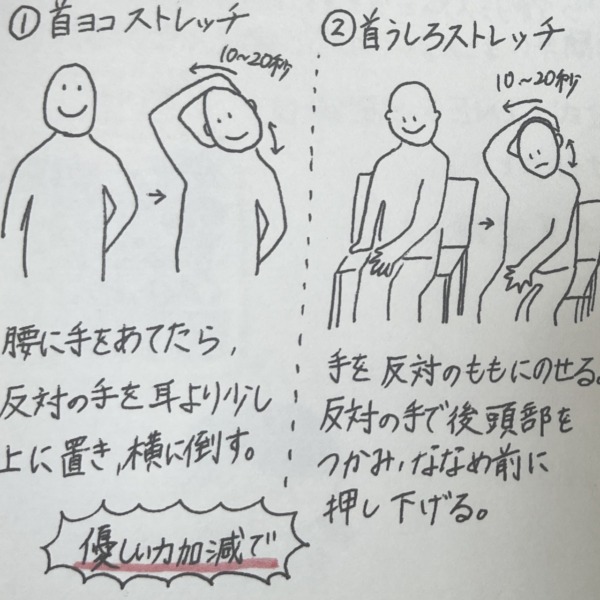 ①首ヨコストレッチ
10~20秒
腰に手をあてたら,
反対の手を耳より少し
上に置き,横に倒す。
優しい力加減で
②首うしろストレッチ
10~20秒
手を反対のももにのせる。
反対の手で後頭部を
つかみ,ななめ前に
押し下げる。